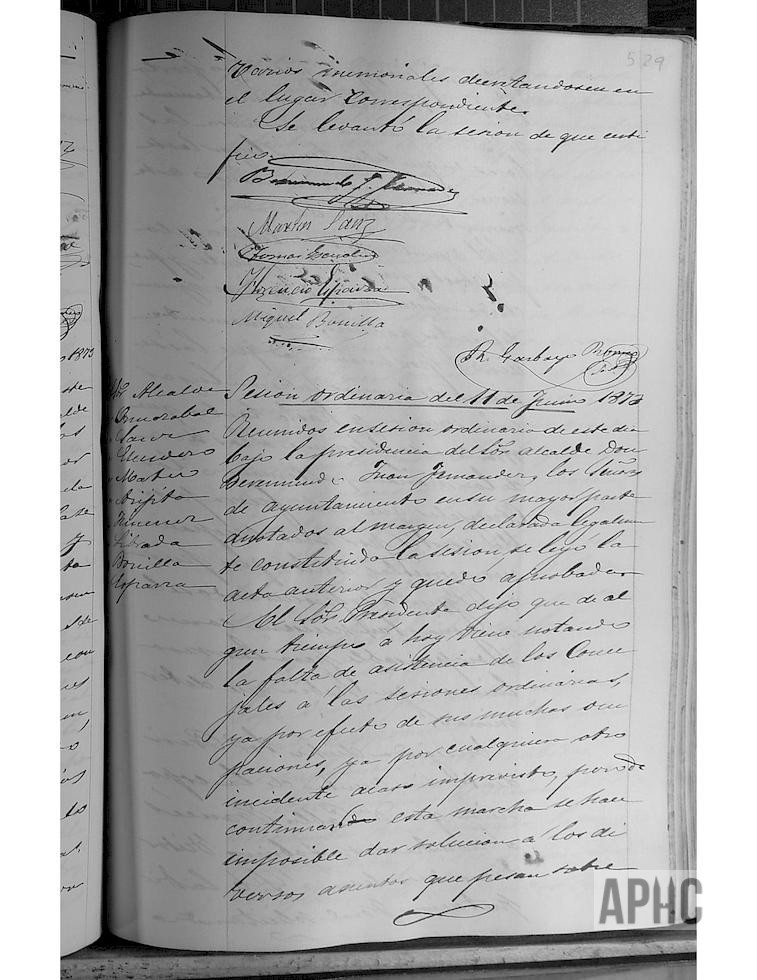 529
Varios memoriales decretandose en
el lugar correspondiente.
Se levantó la sesion de que certi
fico.
Martin Sanz
Tomas Escudero
Miguel Bonilla
R. Garbayo
Sesion ordinaria del 11 de Junio 1873
Sôr Alcalde
Sanz
Escudero
Martin
Arigita
Jimenez
Librada
Bonilla
Esparza
Reunidos en sesion ordinaria de este dia
bajo la presidencia del Sôr alcalde Don
Beremundo Juan Fernandez, los Señores
de ayuntamiento en su mayor parte
anotados al margen, declarada legalmen
te constituida la sesion, se leyó la
acta anterior y quedó aprobada.
El Sôr Presidente dijo que de al
gun tiempo á hoy viene notando
la falta de asistencia de los Conce
jales á las sesiones ordinarias,
ya por efecto de sus muchas ocu
paciones, ya por cualquiera otro
incidente acaso imprevisto, pero de
continuar esta marcha se hace
imposible dar solucion a los di
versos asuntos que pesan sobre
APHC